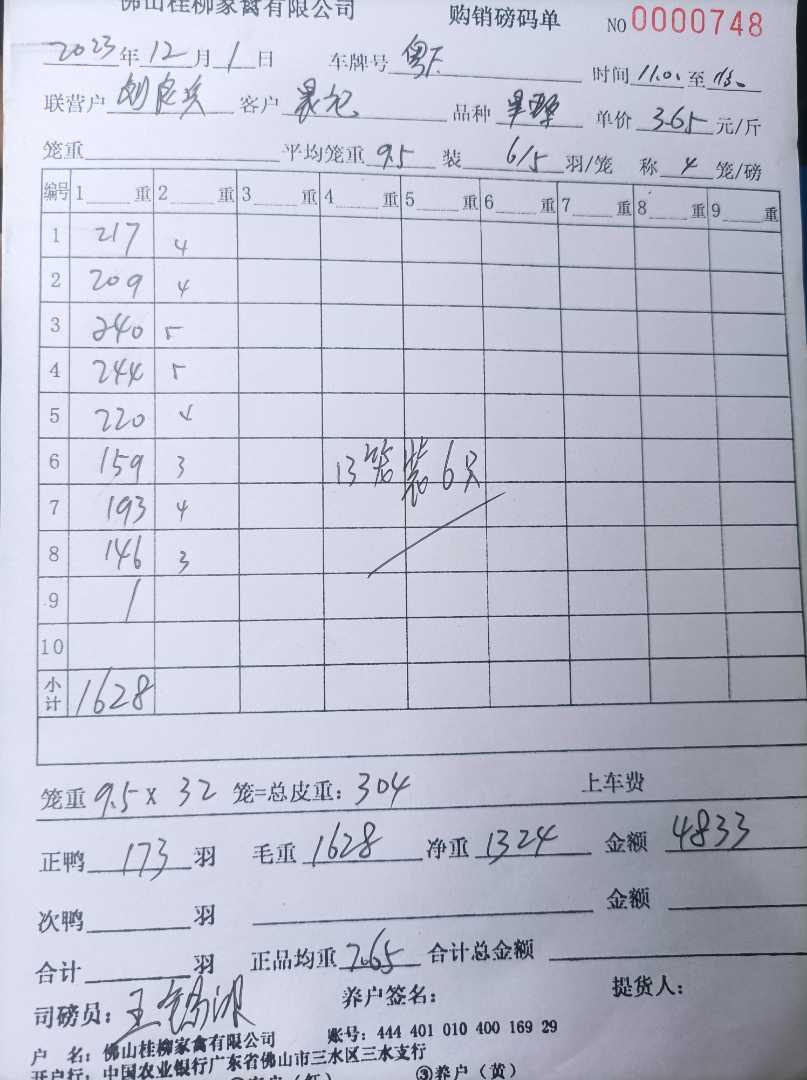 佛山桂柳家禽有限公司 购销磅码单 NO 0000748
2023年12月1日 车牌号 粤 时间 11.01 至
联营户 客户 品种 单价 3.65 元/斤
笼重 平均笼重 9.5 装 6/5 羽/笼 称 4 笼/磅
编号 1 重 2 重 3 重 4 重 5 重 6 重 7 重 8 重 9 重
1 217 4
2 209 4
3 240 5
4 244 5
5 220 4
6 159 3 13笼装6只
7 193 4
8 146 3
9 /
10
小计 1628
笼重 9.5 x 32 笼=总皮重: 304 上车费
正鸭 173 羽 毛重 1628 净重 1324 金额 4833
次鸭 羽 金额
合计 羽 正品均重 7.65 合计总金额
司磅员: 王 养户签名: 提货人:
户 名: 佛山桂柳家禽有限公司 账号: 444 401 010 400 169 29
开户行: 中国农业银行广东省佛山市三水区三水支行
③养户（黄）